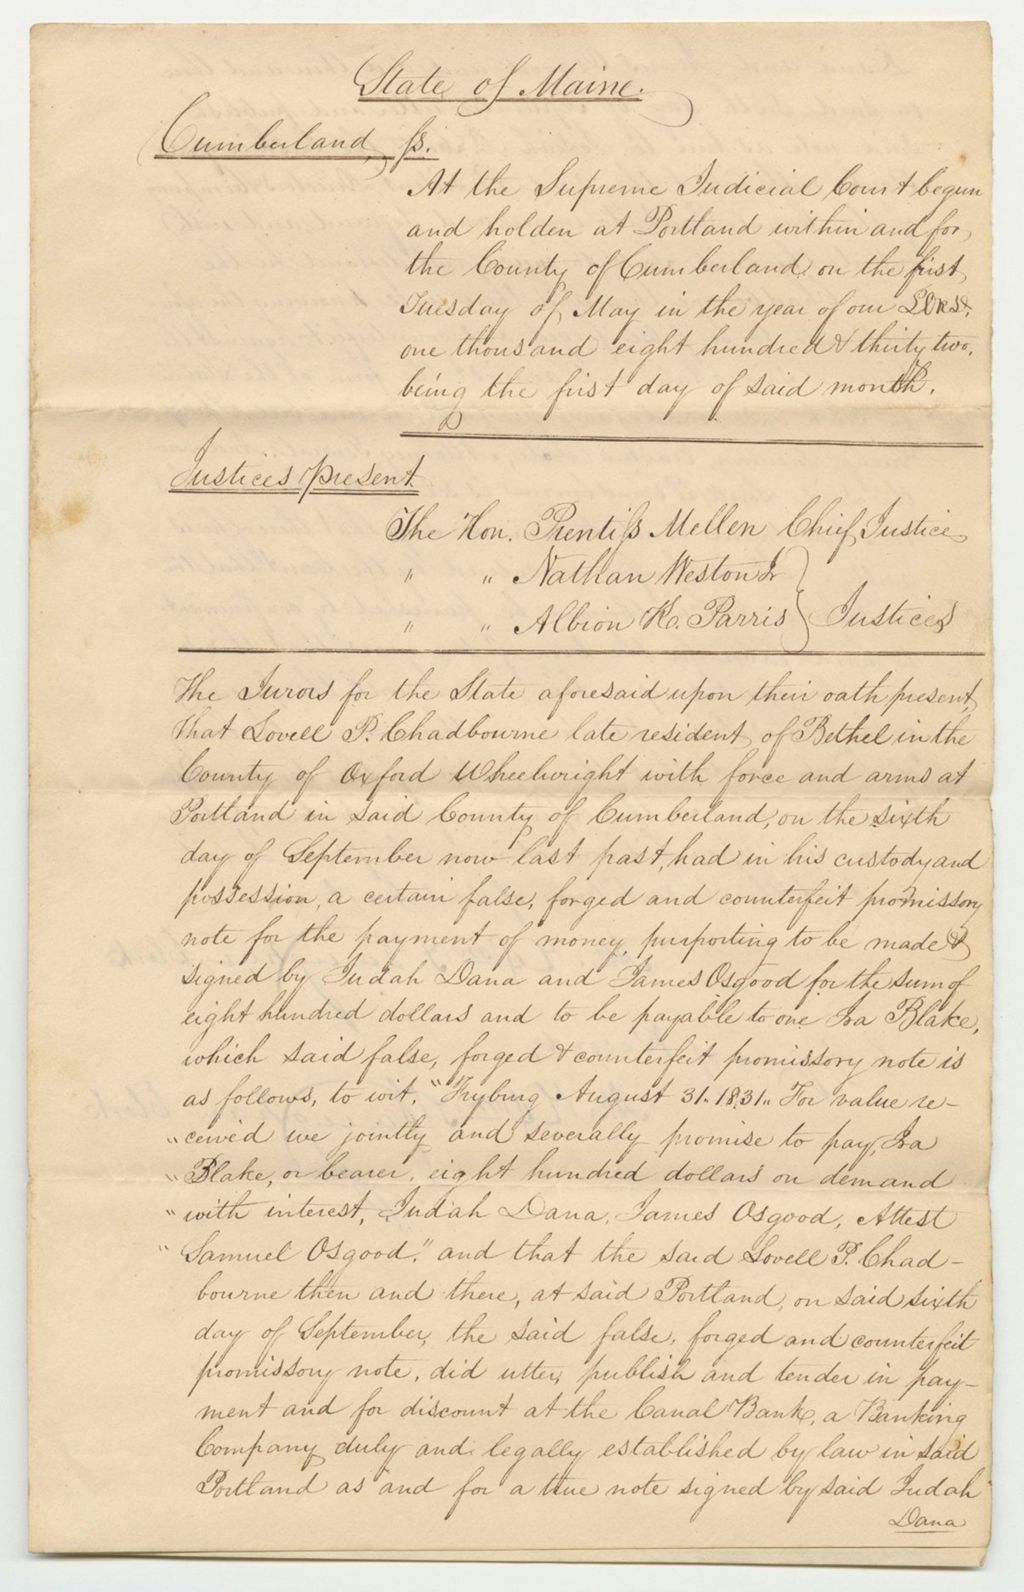 State of Maine.
Cumberland, ss.
At the Supreme Judicial Court begun
and holden at Portland within and for
the County of Cumberland on the first
Tuesday of May in the year of our Lord,
one thousand eight hundred & thirty two,
being the first day of said month.
Justices present.
The Hon. Prentiss Mellen Chief Justice
" " Nathan Weston Jr
" " Albion K. Parris } Justices
The Jurors for the State aforesaid upon their oath present,
that Lovell P. Chadbourne late resident of Bethel in the
County of Oxford Wheelwright with force and arms at
Portland in said County of Cumberland, on the sixth
day of September now last past, had in his custody and
possession, a certain false, forged and counterfeit promissory
note for the payment of money, purporting to be made &
signed by Judah Dana and James Osgood for the sum of
eight hundred dollars and to be payable to one Ira Blake,
which said false, forged & counterfeit promissory note is
as follows, to wit, "Fryburg August 31. 1831. For value re-
"ceived we jointly and severally promise to pay, Ira
"Blake, or bearer, eight hundred dollars on demand
"with interest, Judah Dana, James Osgood, Attest
"Samuel Osgood." and that the said Lovell P. Chad-
bourne then and there, at said Portland, on said sixth
day of September, the said false, forged and counterfeit
promissory note, did utter, publish and tender in pay-
ment and for discount at the Canal Bank, a Banking
Company duly and legally established by law in said
Portland as and for a true note signed by said Judah
Dana